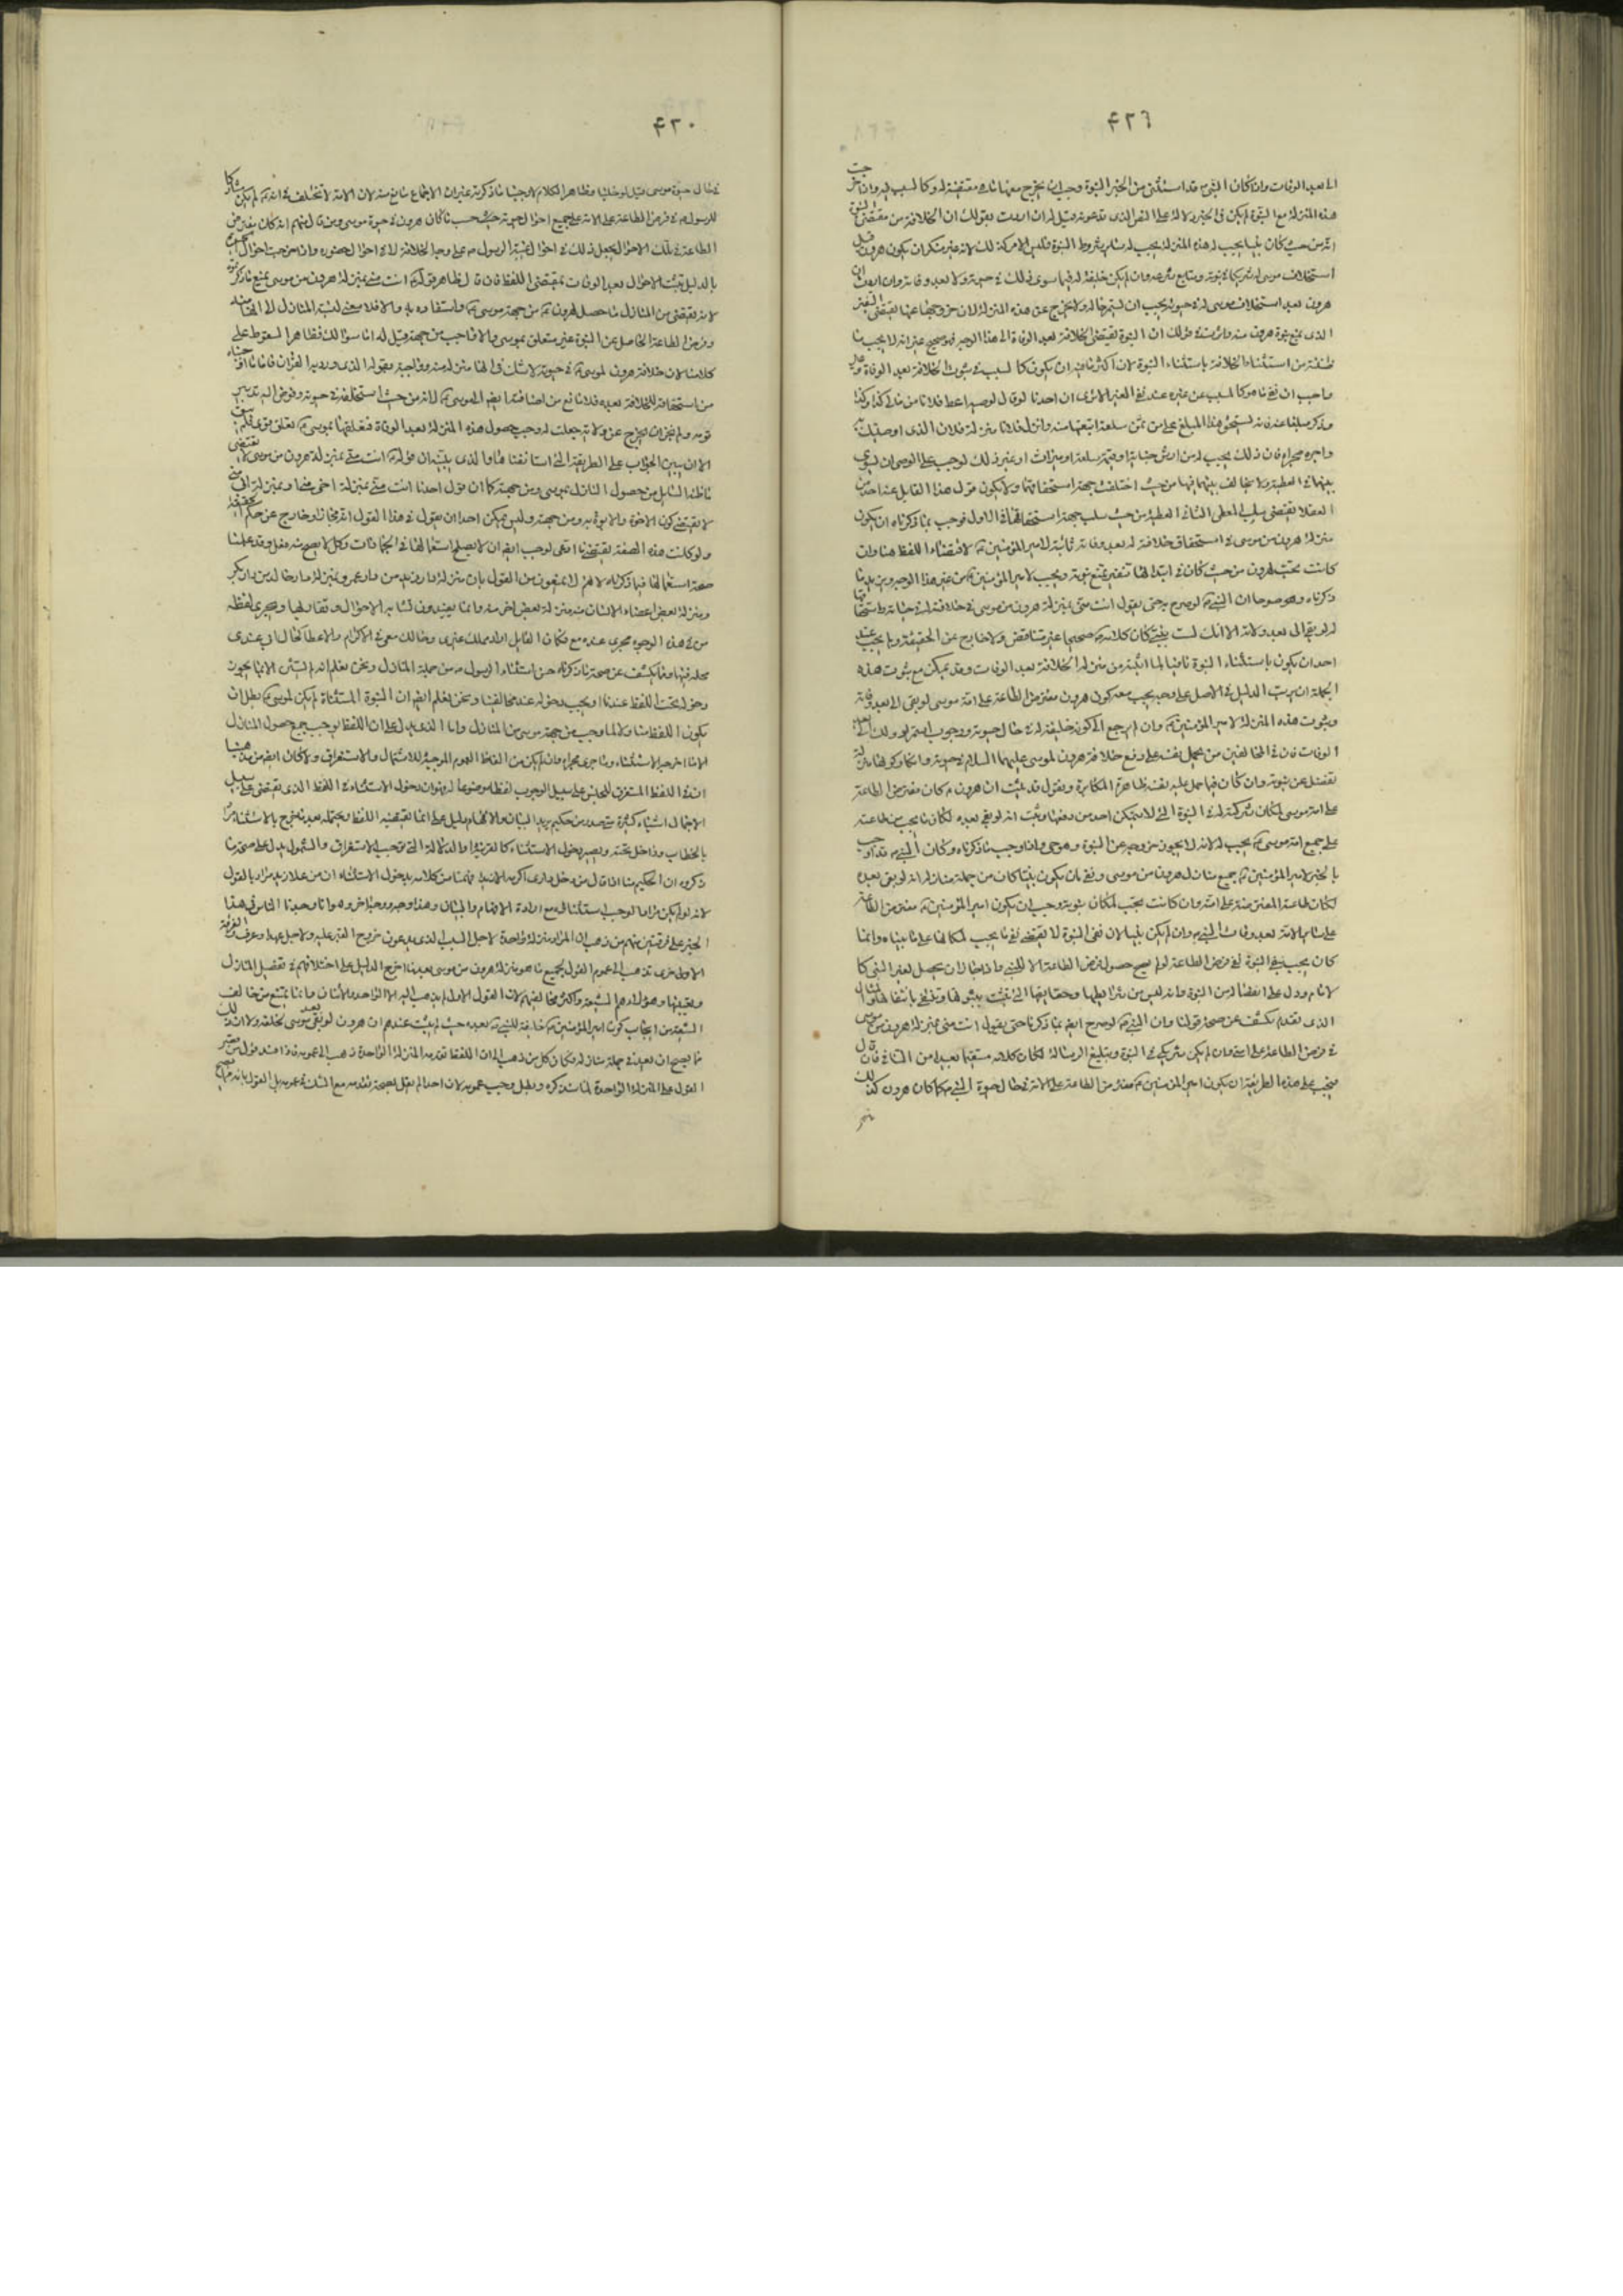 ۴۲۹
الى بعد الوفات واذا كان النبي قد استثنى من الخبر النبوة وجب ان يخرج معها ما هي مقتضية له وكالسبب فيه واذا خرجت
هذه المنزلة مع النبوة لم يكن في الخبر دلالة على النص الذى تدعونه قيل له ان اردت بقولك ان الخلافة من مقتضى النبوة
انه من حيث كان نبيا يجب له هذه المنزلة كما يجب له سائر شروط النبوة فليس الامر كذلك لانه غير منكر ان يكون هرون قبل
استخلاف موسى له شريكا في نبوته وتبليغ شرعه وان لم يكن خليفة له فيما سوى ذلك في حيوته ولا بعد وفاته وان اردت ان
هرون بعد استخلاف موسى له في حيوته يجب ان يستمر حاله ولا يخرج عن هذه المنزلة لان خروجه عنها يقتضى التنفير
الذى يمنع نبوة هرون منه واشرت في قولك ان النبوة تقتضى الخلافة بعد الوفاة الى هذا الوجه فهو صحيح غير انه لا يجب ما
ظننته من استثناء الخلافة باستثناء النبوة لان اكثر ما فيه ان يكون كالسبب في ثبوت الخلافة بعد الوفاة وغير
واجب ان ينفى ما هو كالسبب عن غيره عند نفى الغير الا ترى ان احدنا لو قال لوصيه اعط فلانا من مالى كذا وكذا
وذكر مبلغا عينه فانه يستحق هذا المبلغ على من ثمن سلعة ابتعتها منه وانزل فلانا منزلة فلان الذى اوصيتك به
واجره مجراه فان ذلك يجب له من ارش جناية او قيمة سلعة او ميراث او غير ذلك لوجب على الوصى ان يسوى
بينهما في العطية ولا يخالف بينهما فيها من حيث اختلفت جهة استحقاقهما ولا يكون قول هذا القائل عند احد من
العقلا يقتضى سلب المعطى الثاني العطية من حيث سلب جهة استحقاقها في الاول فوجب بما ذكرناه ان يكون
منزلة هرون من موسى في استحقاق خلافة له بعد وفاته ثابتة لامير المؤمنين لاقتضاء اللفظ لها وان
كانت تجب لهرون من حيث كان في انتفائها تنفير يمنع نبوته ويجب لامير المؤمنين من غير هذا الوجه ويزيد ما
ذكرناه وضوحا ان النبي لو صرح به حتى يقول انت منى بمنزلة هرون من موسى في خلافته له في حياته واستحقاقها
له لو بقى الى بعد وفاته الا انك لست بنبى كان كلامه صحيحا غير متناقض ولا خارج عن الحقيقة ولم يجب عند
احد ان يكون باستثناء النبوة نافيا لما اثبته من منزلة الخلافة بعد الوفات وقد يمكن مع ثبوت هذه
الجملة ان يرتب الدليل في الاصل على وجه يجب معه كون هرون مفترض الطاعة على امة موسى لو بقى الى بعد وفاته
وثبوت هذه المنزلة لامير المؤمنين وان لم يرجع الى كونه خليفة له في حال حيوته ووجوب استمرار ذلك الى بعد
الوفات فان في المخالفين من يحمل نفسه على دفع خلافة هرون لموسى عليهما السلام في حيوته وانكار كونها منزلة
تنفصل عن نبوته وان كان فيما حمل عليه نفسه ظاهره المكابرة ونقول قد ثبت ان هرون كان مفترض الطاعة
على امة موسى لمكان شركته له في النبوة التى لا يتمكن احد من دفعها وثبت انه لو بقى بعده لكان ما يجب من طاعته
على جميع امة موسى يجب له لانه لا يجوز خروجه عن النبوة وهو حى واذا وجب ما ذكرناه وكان النبي قد اوجب
بالخبر لامير المؤمنين جميع منازل هرون من موسى ونفى ان يكون نبيا وكان من جملة منازله انه لو بقى بعده
لكان طاعة المفترضة على امته وان كانت تجب لمكان نبوته وجب ان يكون امير المؤمنين مفترض الطاعة
على سائر الامة بعد وفات النبي وان لم يكن نبيا لان نفى النبوة لا يقتضى نفى ما يجب لمكانها على ما بيناه وانما
كان يجب بنفى النبوة نفى فرض الطاعة لو لم يصح حصول فرض الطاعة الا للنبي واذا جاز ان يحصل لغير النبي كما
لامام دل على انفصاله من النبوة وانه ليس من شرائطها وحقائقها التى تثبت بثبوتها وتنتفى بانتفائها والمثال
الذى تقدم يكشف عن صحة قولنا وان النبي لو صرح ايضا بما ذكرناه حتى يقول انت منى بمنزلة هرون من موسى
في فرض الطاعة على امته وان لم تكن شريكى في النبوة وتبليغ الرسالة لكان كلامه مستقيما بعيدا من التنافى فان قال
فيجب على هذه الطريقة ان يكون امير المؤمنين مفترض الطاعة على الامة في حال حيوة النبي كما كان هرون كذلك
في
۴۳۰
في حال حيوة موسى قيل لو خلينا وظاهر الكلام لاوجبنا ما ذكرته غير ان الاجماع مانع منه لان الامة لا تختلف في انه لم يكن مشاركا
للرسول في فرض الطاعة على الامة على جميع احوال حيوته حسب ما كان هرون في حيوة موسى ومن قال منهم انه كان مفترض
الطاعة في تلك الاحوال يجعل ذلك في احوال غيبة الرسول على وجه الخلافة له لا في احوال حضوره واذا خرجت احوال الحيوة
بالدليل تثبت الاحوال بعد الوفات بمقتضى اللفظ فان قال ظاهر قوله انت منى بمنزلة هرون من موسى يمنع ما ذكرتموه
لانه يقتضى من المنازل ما حصل لهرون من جهة موسى واستفاده به والا فلا معنى لنسبة المنازل الى انها منه
وفرض الطاعة الحاصل عن النبوة غير متعلق بموسى ولا واجب من جهته قيل له اما سؤالك فظاهر السقوط على
كلامنا لان خلافة هرون لموسى في حيوته لا شك في انها منزلة منه وواجبة بقوله الذى ورد به القران فاما ما اوجبناه
من استحقاقه للخلافة بعده فلا مانع من اضافته ايضا الى موسى لانه من حيث استخلفه في حيوته وفوض اليه تدبير
قومه ولم يجز ان يخرج عن ولاية جعلت له وجب حصول هذه المنزلة بعد الوفاة فتعلقها بموسى تعلق قوى فلم يبق
الا ان يبين الجواب على الطريقة التى استانفناها والذى يبينه ان قوله انت منى بمنزلة هرون من موسى لا يقتضى
ما ظنه السائل من حصول المنازل بموسى ومن جهته كما ان قول احدنا انت منى بمنزلة اخى منى او بمنزلة ابى منى
لا يقتضى كون الاخوة والابوة به ومن جهته وليس يمكن احدا ان يقول في هذا القول انه مجاز او خارج عن حكم الحقيقة
ولو كانت هذه الصيغة تقتضى ما ادعى لوجب ايضا ان لا يصح استعمالها في الجمادات وكل ما لا يصح منه فعل وقد علمنا
صحة استعمالها فيما ذكرناه لانهم لا يمنعون من القول بان منزلة دار زيد من دار عمرو بمنزلة دار خالد من دار بكر
ومنزلة بعض اعضاء الانسان منه منزلة بعض اخر منه وانما يفيدون تشابه الاحوال وتقاربها ويجرى لفظة
من في هذه الوجوه مجرى عند ومع فكان القائل اراد محلك عندى وحالك معى في الاكرام والاعطا كحال ابى عندى
ومحله فيهما ومما يكشف عن صحة ما ذكرناه حسن استثناء الرسول من جملة المنازل ونحن نعلم انه لم يستثن الا ما يجوز
دخوله تحت اللفظ عندنا او يجب دخوله عند مخالفينا ونحن نعلم ايضا ان النبوة المستثناة لم تكن لموسى بطل ان
يكون اللفظ متناولا لما وجب من جهة موسى من المنازل واما الذى يدل على ان اللفظ يوجب جميع حصول المنازل
الا ما اخرجه الاستثناء وما جرى مجراه وان لم يكن من الفاظ العموم الموجبة للاشتمال والاستغراق ولا كان ايضا من مذهبنا
ان في اللفظ المستغرق للجنس على سبيل الوجوب لفظا موضوعا له فهو ان دخول الاستثناء في اللفظ الذى يقتضى على سبيل
الاجمال اشياء كثيرة متى صدر من حكيم يريد البيان والافهام دليل على ان ما يقتضيه اللفظ ويحتمله بعد ما خرج بالاستثناء مراد
بالخطاب وداخل تحته ويصير دخول الاستثناء كالقرينة او الدلالة التى توجب الاستغراق والشمول يدل على صحة ما
ذكروه ان الحكيم منا اذا قال من دخل دارى اكرمه الا زيدا فهمنا من كلامه بدخول الاستثناء ان من عدا زيد مراد بالقول
لانه لو لم يكن مرادا لوجب استثناؤه مع ارادة الافهام والبيان وهذا وجه ووجه اخر وهو انا وجدنا الناس في هذا
الخبر على فرقتين منهم من ذهب الى ان المراد منزلة واحدة لاجل السبب الذى يدعون خروج الخبر عليه ولاجل عهد او عرف والفرقة
الاخرى تذهب الى عموم القول بجميع ما هو منزلة هرون من موسى بعد ما اخرجه الدليل على اختلافهم في تفصيل المنازل
وتعيينها وهؤلاء هم الشيعة واكثر مخالفيهم لان القول الاول لم يذهب اليه الا الواحد والاثنان وانما يمتنع من خالف
الشيعة من ايجاب كون امير المؤمنين خليفة للنبي بعده حيث لم يثبت عندهم ان هرون لو بقى بعد موسى لخلفه ولا ان ذلك
مما يصح ان يعد في جملة منازله فكان كل من ذهب الى ان اللفظ تعدى المنزلة الواحدة ذهب الى عمومه فاذا فسد قول من قصر
القول على المنزلة الواحدة لما سنذكره وبطل وجب عمومه لان احدا لم يقل بصحة تعديه مع الشك في عمومه بل القول بانه